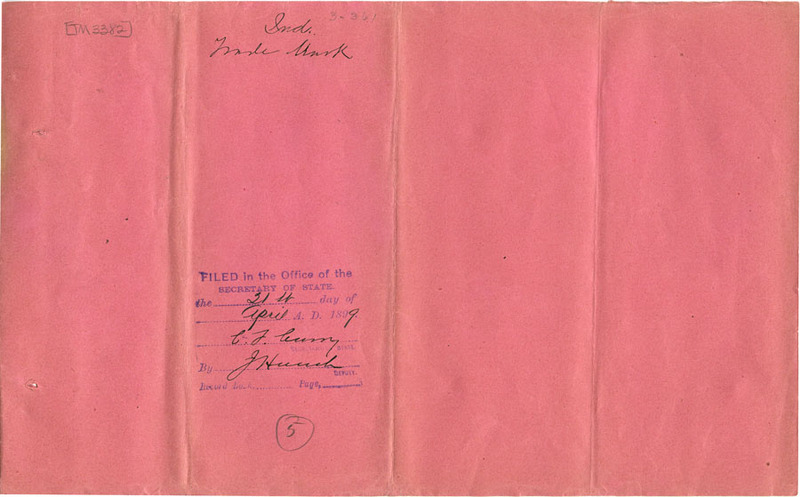 TM 3382
Ind.
Trade Mark
FILED in the Office of the
SECRETARY OF STATE.
the 21st day of
April A. D. 1899.
C. F. Curry
By J Hoesch
DEPUTY.
Record Book Page,
5